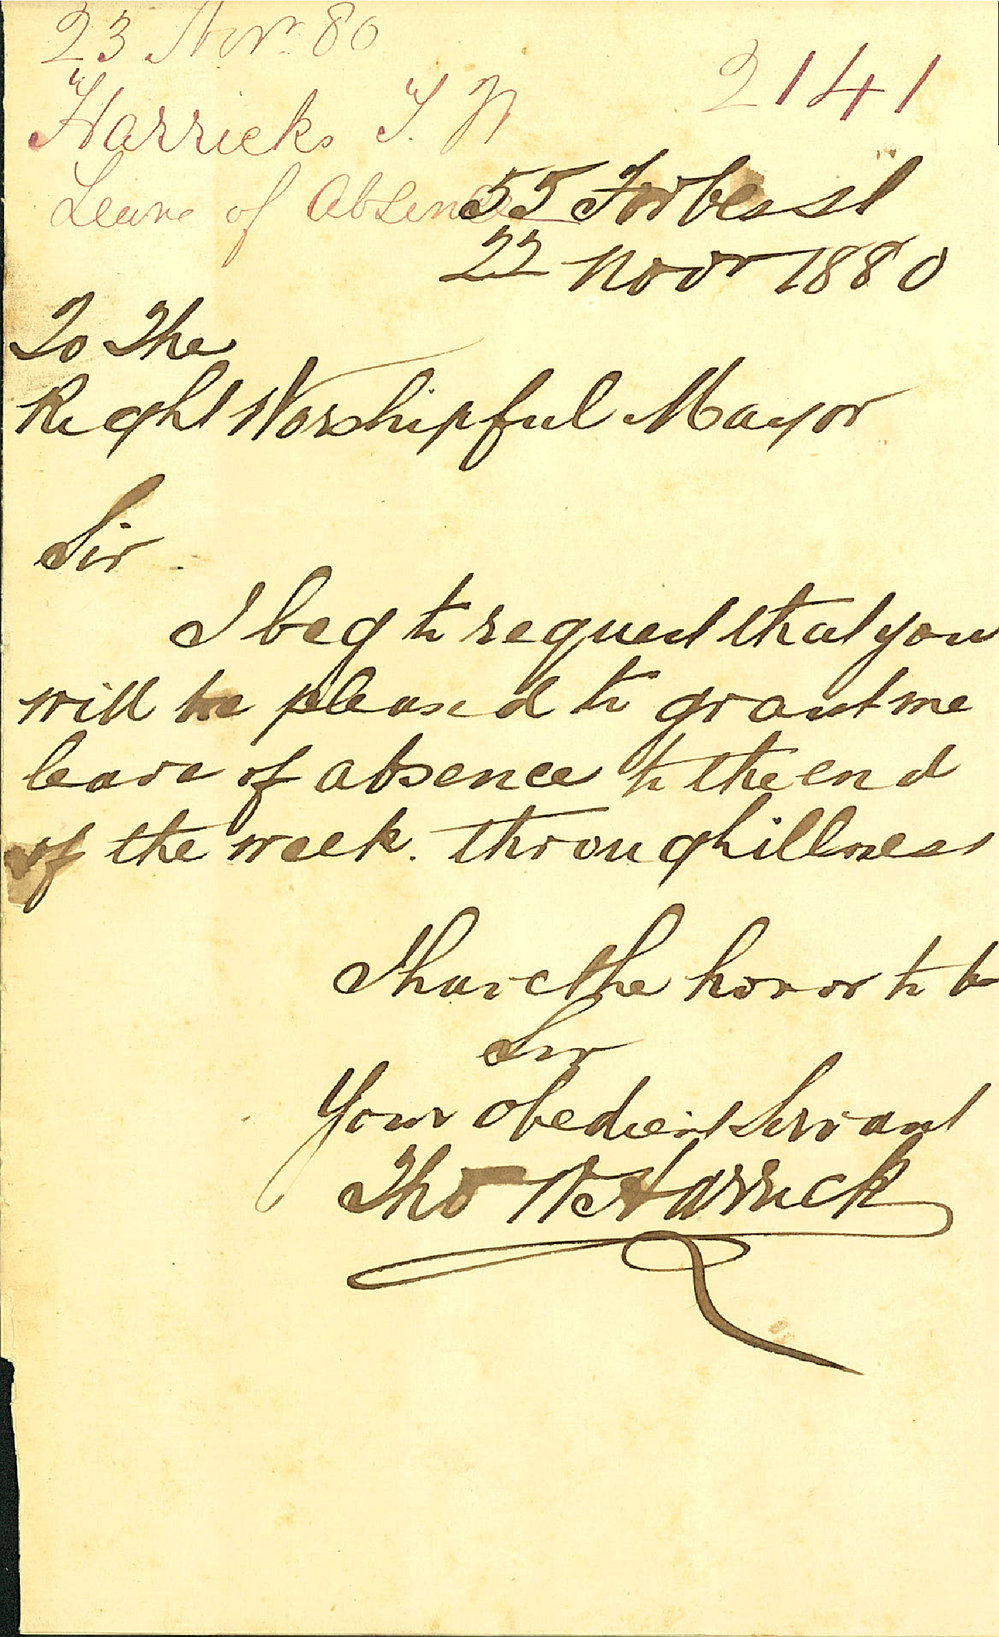 23 Novr. 80
2141
Harricks T. W
Leave of Absence
55 Forbes st
22 Novr 1880
To The
Right Worshipful Mayor
Sir
I beg to request that you
will be pleased to grant me
leave of absence to the end
of the week. through illness
I have the honor to be
Sir
Your obedient Servant
Thos W Harrick